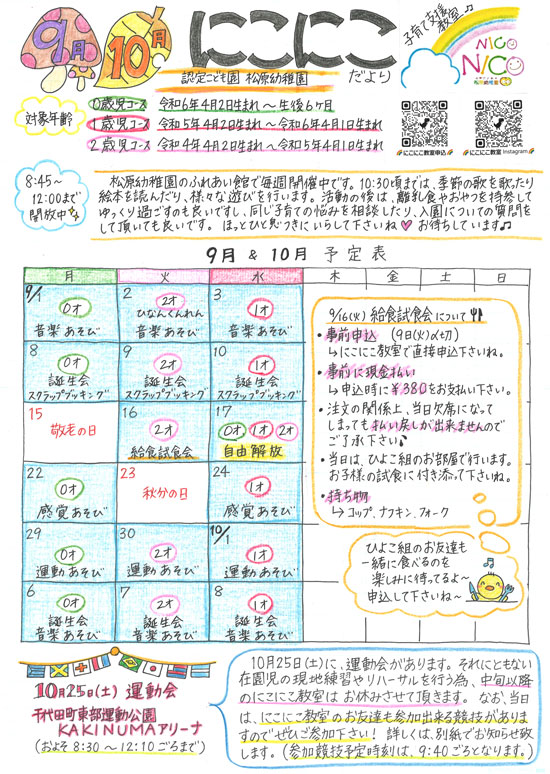 9月
10月
にこにこ
だより
認定こども園 松原幼稚園
子育て支援
教室♪
NICO
NICO
対象年齢
0歳児コース 令和6年4月2日生まれ～生後6ヶ月
1歳児コース 令和5年4月2日生まれ～令和6年4月1日生まれ
2歳児コース 令和4年4月2日生まれ～令和5年4月1日生まれ
にこにこ教室申込
にこにこ教室 Instagram
8:45～
12:00まで
開放中
松原幼稚園のふれあい館で毎週開催中です。10:30頃までは、季節の歌を歌ったり
絵本を読んだり、様々な遊びを行います。活動の後は、離乳食やおやつを持参して
ゆっくり過ごすのも良いですし、同じ子育ての悩みを相談したり、入園についての質問を
して頂いても良いです。ほっとひと息つきにいらして下さいね♥お待ちしています♫
9月 & 10月 予定表
月 火 水 木 金 土 日
9/1 0才 音楽あそび
2 2才 ひなんくんれん 音楽あそび
3 1才 音楽あそび
8 0才 誕生会 スクラップブッキング
9 2才 誕生会 スクラップブッキング
10 1才 誕生会 スクラップブッキング
15 敬老の日
16 2才 給食試食会
17 0才 1才 2才 自由解放
22 0才 感覚あそび
23 秋分の日
24 1才 感覚あそび
29 0才 運動あそび
30 2才 運動あそび
10/1 1才 運動あそび
6 0才 誕生会 音楽あそび
7 2才 誕生会 音楽あそび
8 1才 誕生会 音楽あそび
9/16(火) 給食試食会について
・事前申込 (9日(火)〆切)
↳にこにこ教室で直接申込下さいね。
・事前に現金払い
↳申込時に¥380をお支払い下さい。
・注文の関係上、当日欠席になって
しまっても払い戻しが出来ませんので
ご了承下さい
・当日は、ひよこ組のお部屋で行います。
お子様の試食に付き添って下さいね。
・持ち物
↳コップ、ナフキン、フォーク
ひよこ組のお友達も
一緒に食べるのを
楽しみに待ってるよ～
申込して下さいね～
10月25日(土) 運動会
千代田町東部運動公園
KAKINUMAアリーナ
(およそ 8:30～12:10ごろまで)
10月25日(土)に、運動会があります。それにともない
在園児の現地練習やリハーサルを行う為、中旬以降
のにこにこ教室はお休みさせて頂きます。なお、当日
は、にこにこ教室のお友達も参加出来る競技がありま
すのでぜひご参加下さい！詳しくは、別紙でお知らせ致
します。(参加競技予定時刻は、9:40ごろとなります。)